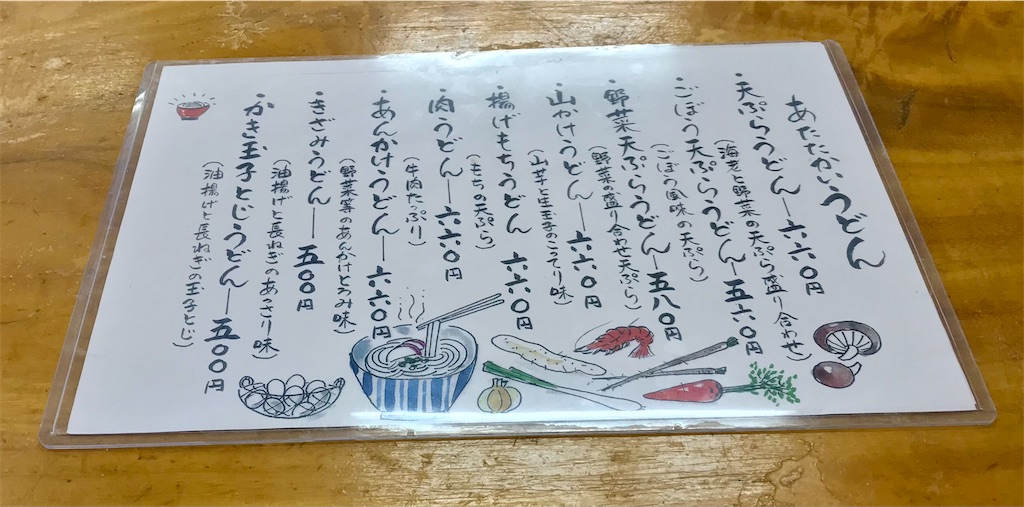 あたたかいうどん
・天ぷらうどん—六六〇円
(海老と野菜の天ぷら盛り合わせ)
・ごぼう天ぷらうどん—五六〇円
(ごぼう風味の天ぷら)
・野菜天ぷらうどん—五八〇円
(野菜の盛り合わせ天ぷら)
・山かけうどん—六六〇円
(山芋と生玉子のこってり味)
・揚げもちうどん 六六〇円
(もちの天ぷら)
・肉うどん—六六〇円
(牛肉たっぷり)
・あんかけうどん—六六〇円
(野菜等のあんかけとろみ味)
・きざみうどん—五〇〇円
(油揚げと長ねぎのあっさり味)
・かき玉子とじうどん—五〇〇円
(油揚げと長ねぎの玉子とじ)